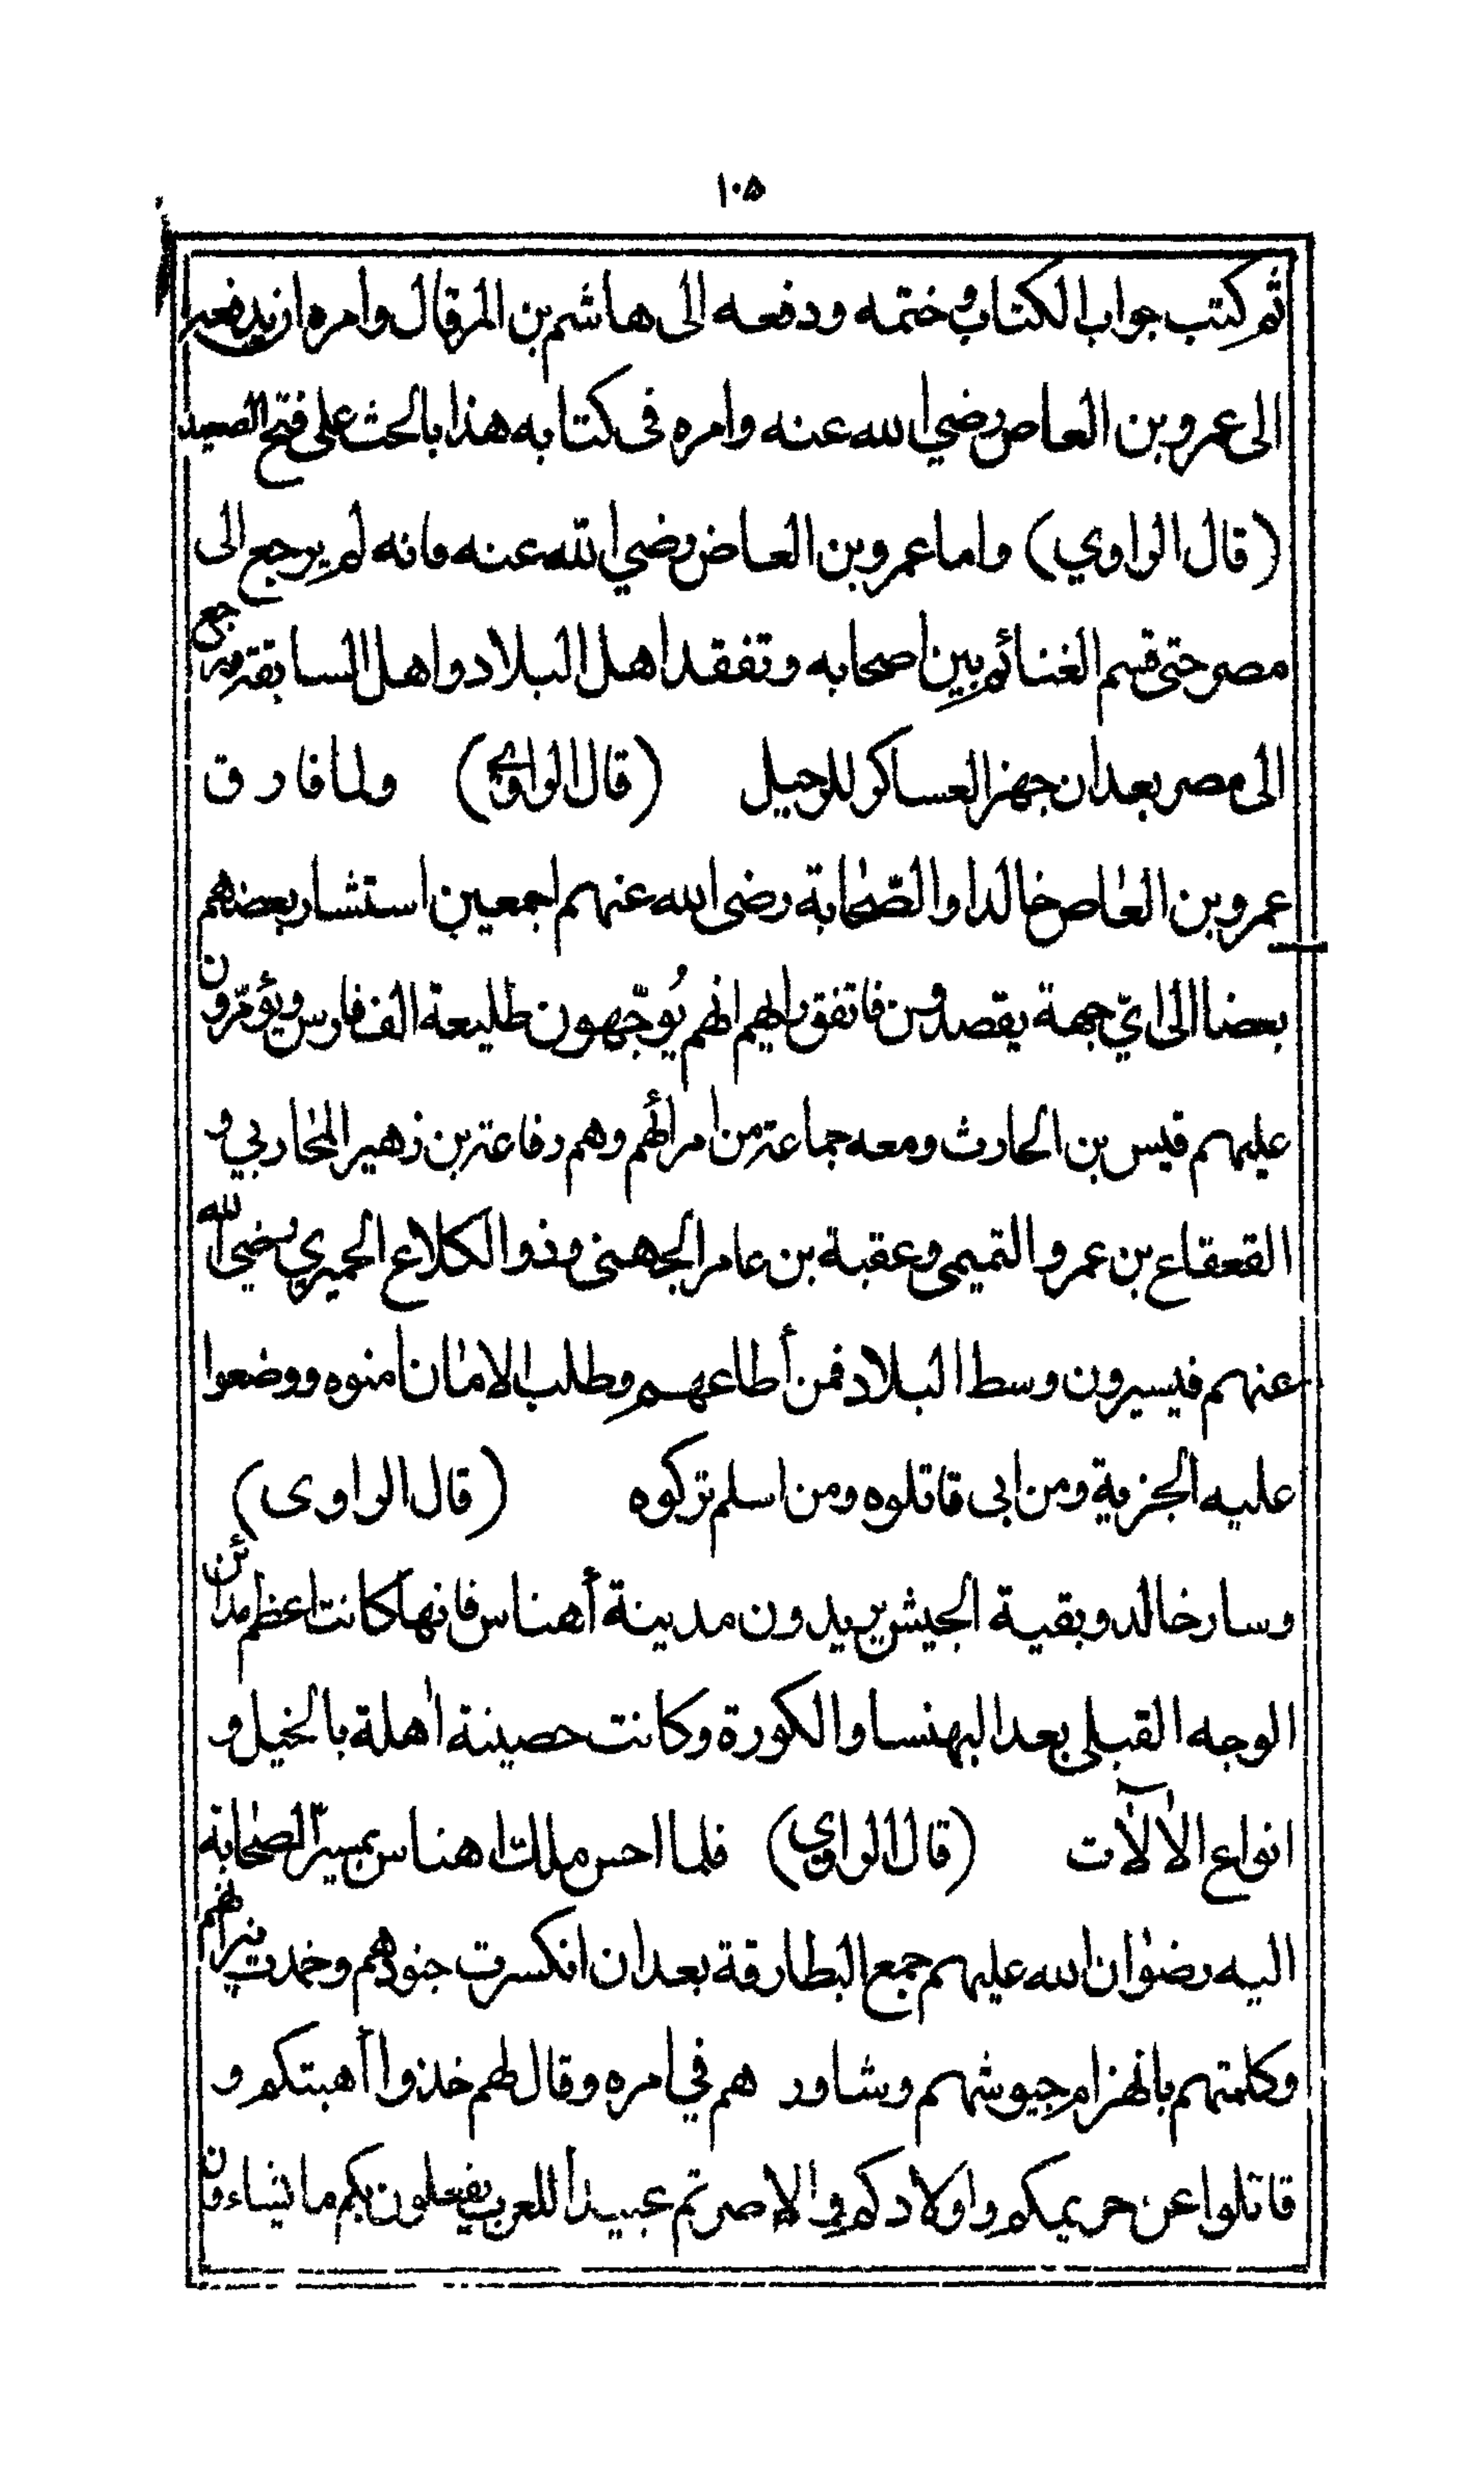 ١٠٥
ثم كتب جواب الكتاب وختمه ودفعه الى هاشم بن المرقال وامره ان يدفعه
الى عمرو بن العاص رضي الله عنه وامره فى كتابه هذا بالحث على فتح الصعيد
(قال الراوي) واما عمرو بن العاص رضي الله عنه فانه لم يرجع الى
مصر حتى قسم الغنائم بين اصحابه وتفقد اهل البلاد واهل السابقة ورجع
الى مصر بعد ان جهز العساكر للرحيل (قال الراوي) ولما فارق
عمرو بن العاص خالدا والصّحابة رضى الله عنهم اجمعين استشار بعضهم
بعضا الى ايّ جهة يقصدون فاتفق رايهم انهم يُوجّهون طليعة الف فارس ويؤمّرون
عليهم قيس بن الحارث ومعه جماعة من امرائهم وهم رفاعة بن زهير المحاربي و
القعقاع بن عمرو التميمى وعقبة بن عامر الجهنى وذو الكلاع الحميري رضي الله
عنهم فيسيرون وسط البلاد فمن أطاعهم وطلب الامان أمنوه ووضعوا
عليه الجزية ومن ابى قاتلوه ومن اسلم تركوه (قال الراوى)
وسار خالد وبقية الجيش يريدون مدينة أهناس فانها كانت اعظم مدائن
الوجه القبلى بعد البهنسا والكورة وكانت حصينة اٰهلة بالخيل و
انواع الاٰلاٰت (قال الراوي) فلما احس ملك اهناس بمسير الصّحابة
اليه رضوان الله عليهم جمع البطارقة بعد ان انكسرت جنودهم وخمدت نيرانهم
وكلمتهم بانهزام جيوشهم وشاور هم في امره وقال لهم خذوا أهبتكم و
قاتلوا عن حريمكم واولادكم والا صرتم عبيداً للعرب يفعلون بكم ما يشاءون